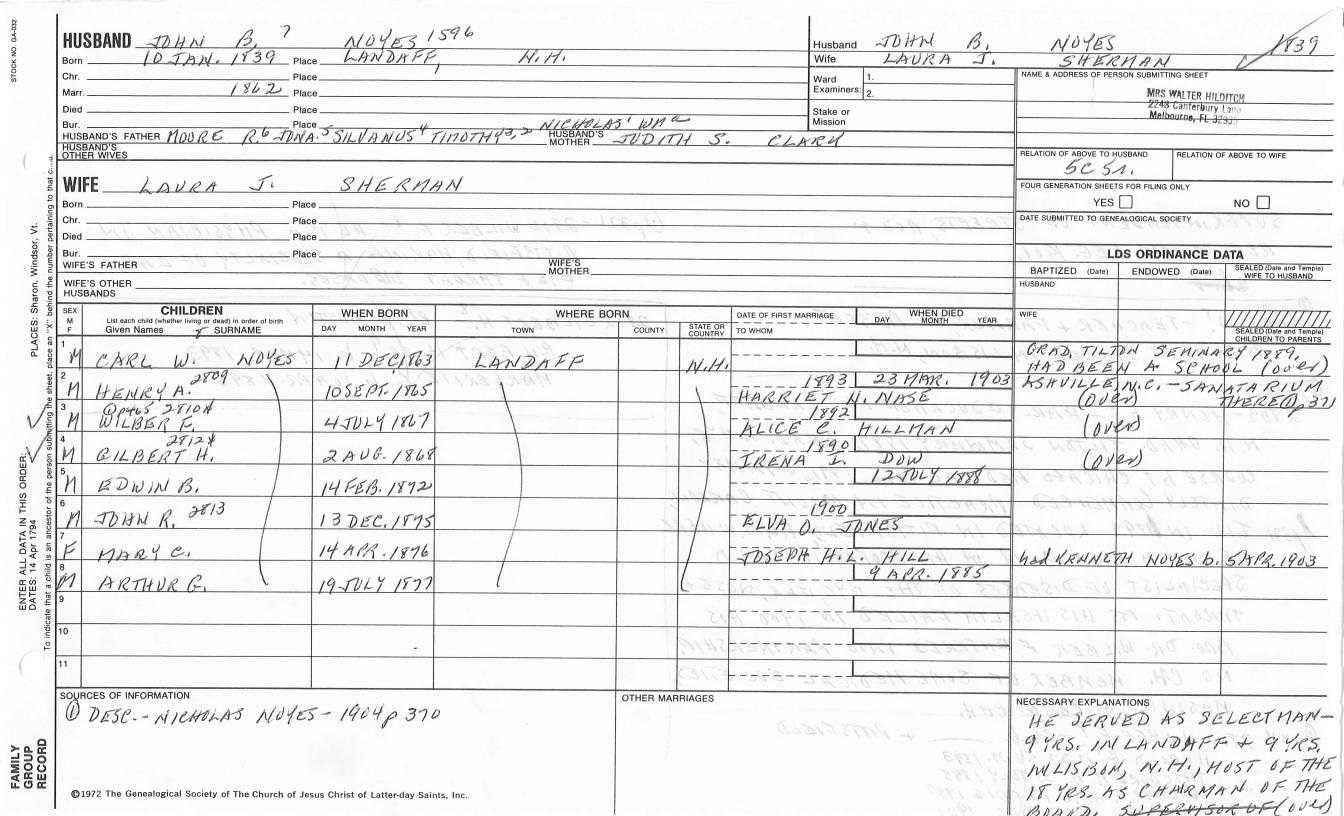 STOCK NO. GA-032
HUSBAND JOHN B. 7 NOYES 1596
Born 10 JAN. 1839 Place LANDAFF, N.H.
Chr. Place
Marr. 1862 Place
Died Place
Bur. Place
HUSBAND'S FATHER MOORE R.6 JONA.5 SILVANUS4 TIMOTHY3,2 NICHOLAS1 WMa HUSBAND'S MOTHER JUDITH S. CLARK
HUSBAND'S OTHER WIVES
Husband JOHN B. NOYES 1839
Wife LAURA J. SHERMAN
Ward Examiners: 1.
2.
Stake or Mission
NAME & ADDRESS OF PERSON SUBMITTING SHEET
MRS WALTER HILDITCH
2248 Canterbury Lane
Melbourne, FL 32935
RELATION OF ABOVE TO HUSBAND RELATION OF ABOVE TO WIFE
5C 5r.
FOUR GENERATION SHEETS FOR FILING ONLY
YES NO
DATE SUBMITTED TO GENEALOGICAL SOCIETY
WIFE LAURA J. SHERMAN
Born Place
Chr. Place
Died Place
Bur. Place
WIFE'S FATHER WIFE'S MOTHER
WIFE'S OTHER HUSBANDS
LDS ORDINANCE DATA
BAPTIZED (Date) ENDOWED (Date) SEALED (Date and Temple) WIFE TO HUSBAND
HUSBAND
WIFE
SEALED (Date and Temple) CHILDREN TO PARENTS
SEX M F
CHILDREN
List each child (whether living or dead) in order of birth
Given Names SURNAME
WHEN BORN
DAY MONTH YEAR
WHERE BORN
TOWN COUNTY STATE OR COUNTRY
DATE OF FIRST MARRIAGE
TO WHOM
WHEN DIED
DAY MONTH YEAR
1 M CARL W. NOYES 11 DEC. 1863 LANDAFF N.H. GRAD. TILTON SEMINARY 1889,
HAD BEEN A SCHOOL (over)
2 M HENRY A. 2809 10 SEPT. 1865 1893 23 MAR. 1903 ASHVILLE, N.C. - SANATARIUM
HARRIET H. NASE (over) THERE ① p 371
3 M ① p465 2810+ WILBER F. 4 JULY 1867 1892
ALICE C. HILLMAN (over)
4 M 2812+ GILBERT H. 2 AUG. 1868 1890
IRENA I. DOW (over)
5 M EDWIN B. 14 FEB. 1872 12 JULY 1888
6 M JOHN R. 2813 13 DEC. 1875 1900
ELVA O. JONES
7 F MARY C. 14 APR. 1876 JOSEPH H.L. HILL had KENNETH NOYES b. 5 APR. 1903
8 M ARTHUR G. 19 JULY 1877 9 APR. 1885
9
10
11
SOURCES OF INFORMATION
① DESC. - NICHOLAS NOYES - 1904 p 370
OTHER MARRIAGES
NECESSARY EXPLANATIONS
HE SERVED AS SELECTMAN -
9 YRS. IN LANDAFF & 9 YRS.
IN LISBON, N.H., MOST OF THE
18 YRS. AS CHAIRMAN OF THE
BOARD. SUPERVISOR OF (over)
©1972 The Genealogical Society of The Church of Jesus Christ of Latter-day Saints, Inc.
FAMILY GROUP RECORD
ENTER ALL DATA IN THIS ORDER:
DATES: 14 Apr 1794
PLACES: Sharon, Windsor, Vt.
To indicate that a child is an ancestor of the person submitting the sheet, place an "X" behind the number pertaining to that